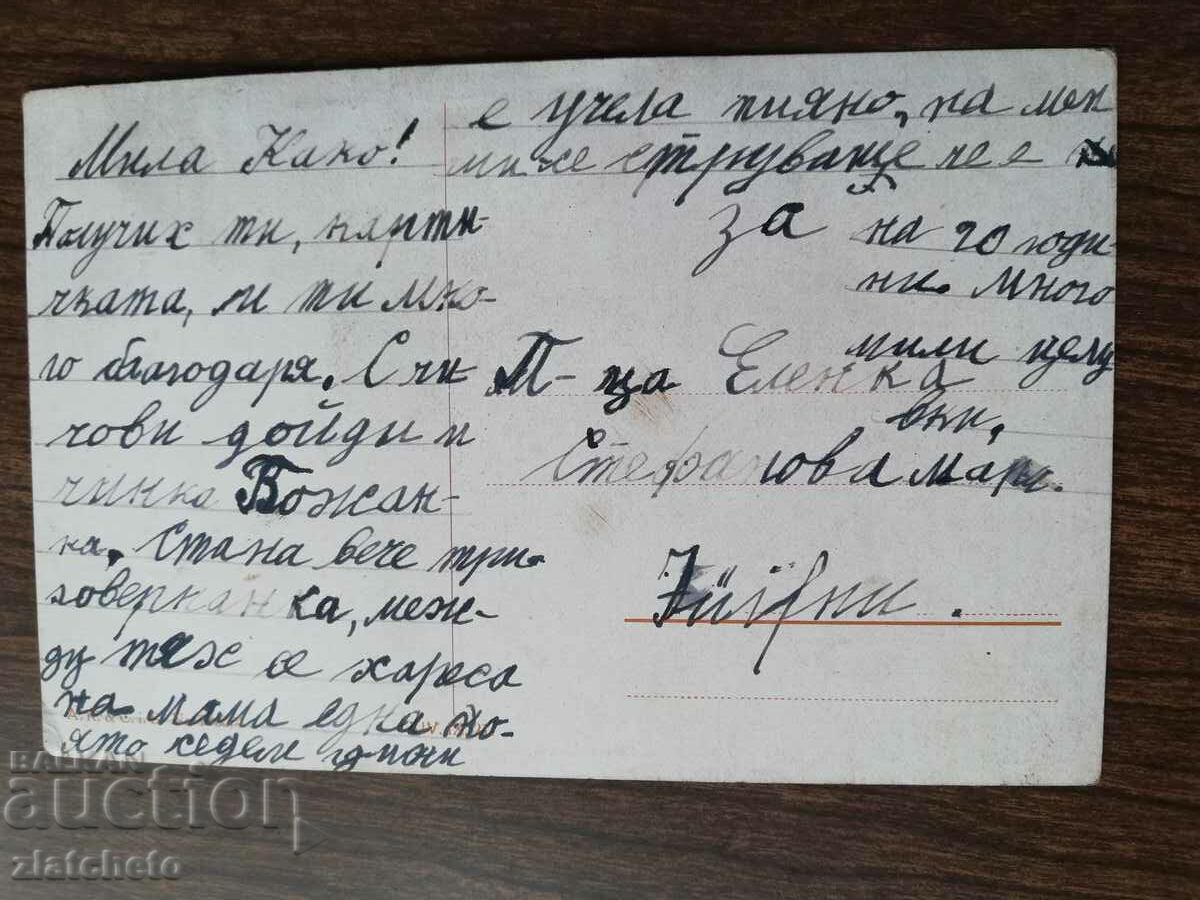 Мила Како!
Получих ти, карти-
чката, и ти мно-
го благодаря. С чи
чови дойди и
чинка Божан-
ка. Стана вече три-
говерканка, меж-
ду тях се хареса
на мама една ко-
ято седем години
е учела пияно, на мен
ми се струваще че е
за на 20 годи-
ни. Много
мили целу
вки.
Т-ца Еленка
Стефанова
BALKAN
auction
zlatcheto